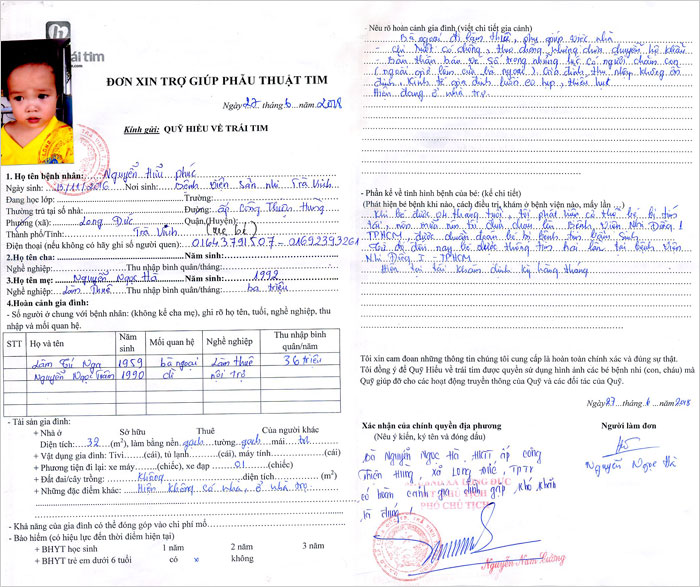 trái tim
ĐƠN XIN TRỢ GIÚP PHẪU THUẬT TIM
Ngày 27 tháng 6 năm 2018
Kính gửi: QUỸ HIỂU VỀ TRÁI TIM
1. Họ tên bệnh nhân: Nguyễn Hữu phúc
Ngày sinh: 13/11/2016 Nơi sinh: Bệnh Viện Sản nhi Trà Vinh
Đang học lớp: Trường:
Thường trú tại số nhà: Đường: ấp Công Thiện Hùng
Phường (xã): Long Đức Quận (Huyện):
Thành phố/Tỉnh: Trà Vinh (mẹ bé)
Điện thoại (nếu không có hãy ghi số người quen): 01643791507 - 01692393261
2.Họ tên cha: Năm sinh:
Nghề nghiệp: Thu nhập bình quân/tháng:
3.Họ tên mẹ: Nguyễn Ngọc Hà Năm sinh: 1992
Nghề nghiệp: Làm Thuê Thu nhập bình quân/tháng: ba triệu
4.Hoàn cảnh gia đình:
- Số người ở chung với bệnh nhân: (không kể cha mẹ), ghi rõ họ tên, tuổi, nghề nghiệp, thu
nhập và mối quan hệ.
STT Họ và tên Năm sinh Mối quan hệ Nghề nghiệp Thu nhập bình quân/năm
Lâm Tú Nga 1959 bà ngoại Làm thuê 36 triệu
Nguyễn Ngọc Trâm 1990 dì nội trợ
- Tài sản gia đình:
+ Nhà ở Sở hữu Thuê Của người khác
Diện tích: 32 (m²), làm bằng nền gạch tường gạch mái
+ Vật dụng gia đình: Tivi (cái), tủ lạnh (cái), máy tính (cái)
+ Phương tiện đi lại: xe máy (chiếc), xe đạp 01 (chiếc)
+ Đất đai/cây trồng: Không diện tích (m²)
+ Những đặc điểm khác: Hiện không có nhà, ở nhà trọ.
- Khả năng của gia đình có thể đóng góp vào chi phí mổ
- Bảo hiểm (có hiệu lực đến thời điểm hiện tại)
+ BHYT học sinh 1 năm 2 năm 3 năm
+ BHYT trẻ em dưới 6 tuổi có x không
- Nêu rõ hoàn cảnh gia đình (viết chi tiết gia cảnh)
Bà ngoại đi làm thuê, phụ giúp việc nhà
có chồng, theo chồng nhưng chưa chuyển hộ khẩu
- Bản thân bán vé số trong những lúc có người chăm con
Gia đình thu nhập không ổn
định, Kinh tế gia đình luôn eo hẹp, thiếu hụt
Hiện đang ở nhà trọ.
- Phần kể về tình hình bệnh của bé: (kể chi tiết)
(Phát hiện bé bệnh khi nào, cách điều trị, khám ở bệnh viện nào, mấy lần
Khi bé được 04 tháng tuổi, tôi phát hiện cơ thể bé bị tím
tái, nên mới đưa lên Bệnh Viện Nhi Đồng 1
TPHCM, được chuẩn đoán bé bị bệnh tim bẩm Sinh.
Từ đó đến nay được thông tim hai lần tại bệnh Viện
Nhi Đồng I - TPHCM
Hiện tại tái khám định kỳ hằng tháng
Tôi xin cam đoan những thông tin chúng tôi cung cấp là hoàn toàn chính xác và đúng sự thật.
Tôi đồng ý để Quỹ Hiểu về trái tim được quyền sử dụng hình ảnh các bé bệnh nhi (con, cháu) mà
Quỹ giúp đỡ cho các hoạt động truyền thông của Quỹ và các đối tác của Quỹ.
Ngày 27 tháng 6 năm 2018
Xác nhận của chính quyền địa phương Người làm đơn
(Nêu ý kiến, ký tên và đóng dấu)
Bà Nguyễn Ngọc Hà, HKTT ấp công
Thiện Hùng, xã Long Đức, TPTV
có hoàn cảnh gia đình gặp khó khăn
là đúng!
Nguyễn Ngọc Hà
PHÓ CHỦ TỊCH
Nguyễn Nam Cường